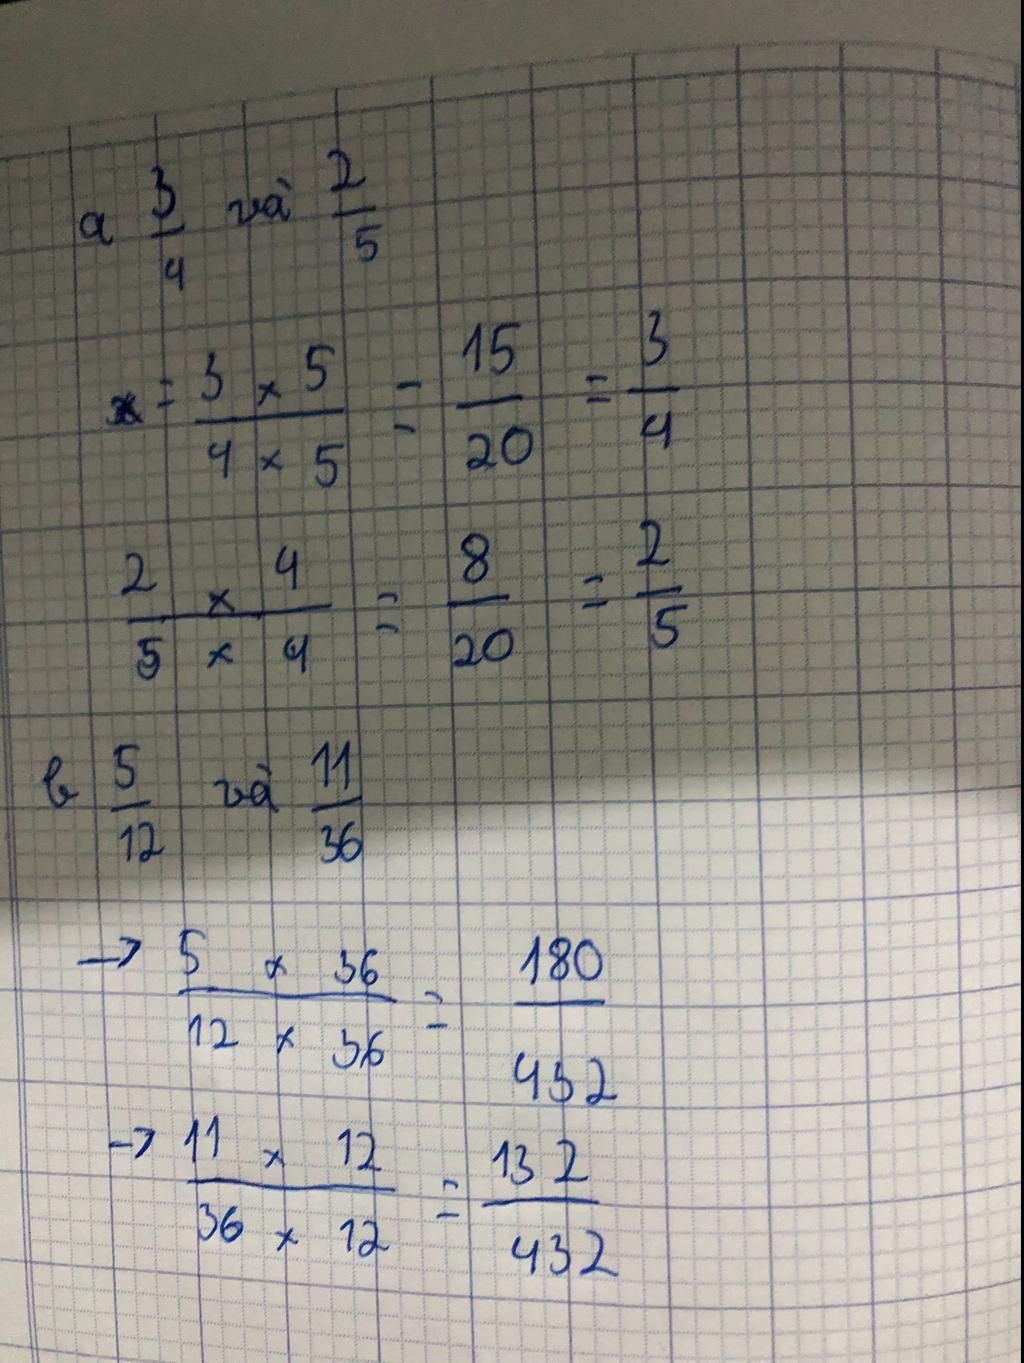 a 3/4 và 2/5
x = 3 x 5 / 4 x 5 = 15/20 = 3/4
2 x 4 / 5 x 4 = 8/20 = 2/5
b 5/12 và 11/36
→ 5 x 36 / 12 x 36 = 180/432
→ 11 x 12 / 36 x 12 = 132/432